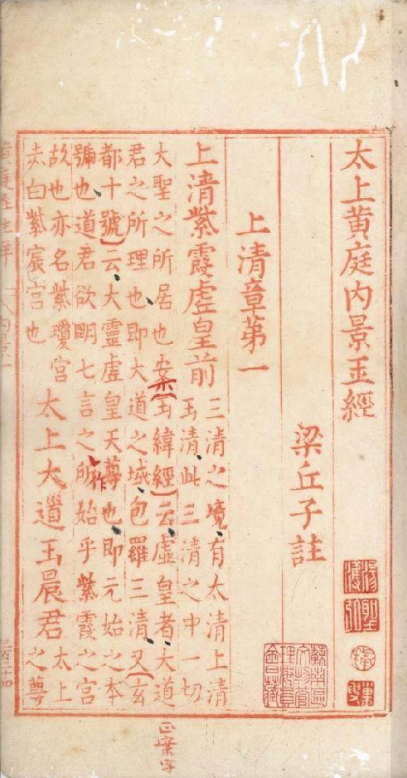 太上黄庭内景玉經
梁丘子註
上清章第一
上清紫霞虛皇前
三清之境有太清上清
玉清此三清之中一切
大聖之所居也案玉緯經云虛皇者大道
君之所理也即大道之域包羅三清又玄
都十號云大靈虛皇天尊也即元始之本
號也道君欲明七言之所始乎紫霞之宮
故也亦名紫瓊宮
赤白紫宸宮也
太上大道玉晨君
太上
之尊
作
内景一